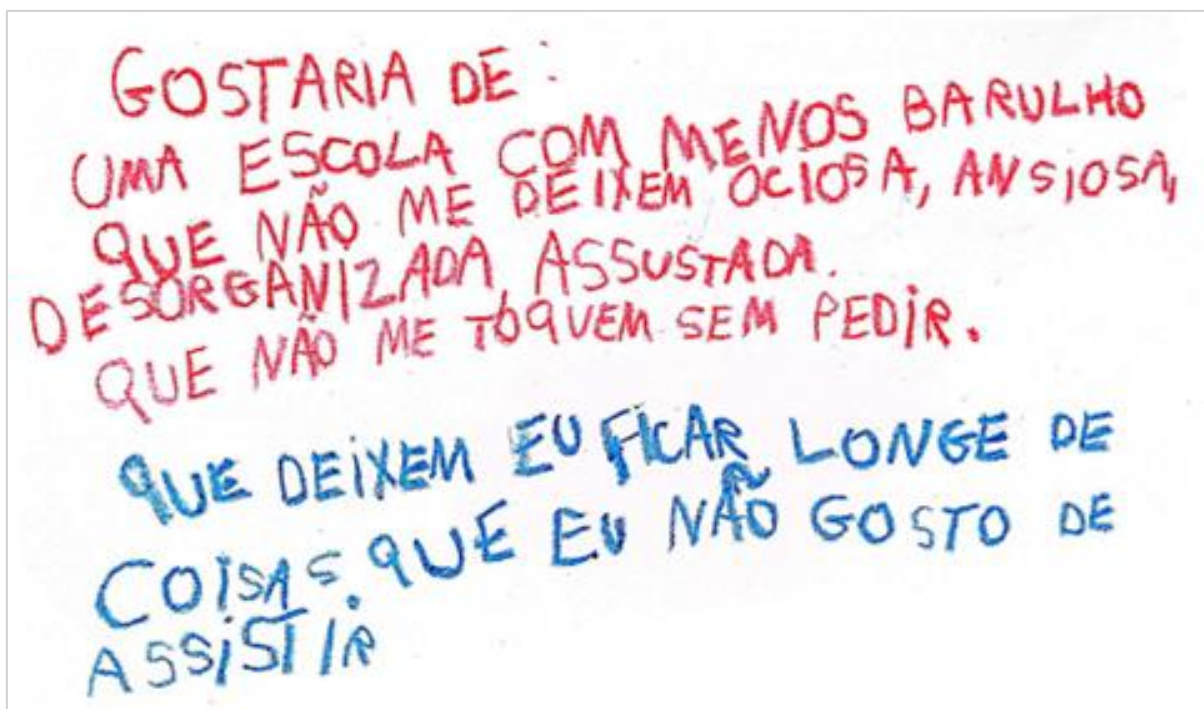 GOSTARIA DE :
UMA ESCOLA COM MENOS BARULHO
QUE NÃO ME DEIXEM OCIOSA, ANSIOSA,
DESORGANIZADA, ASSUSTADA.
QUE NÃO ME TOQUEM SEM PEDIR.
QUE DEIXEM EU FICAR LONGE DE
COISAS. QUE EU NÃO GOSTO DE
ASSISTIR